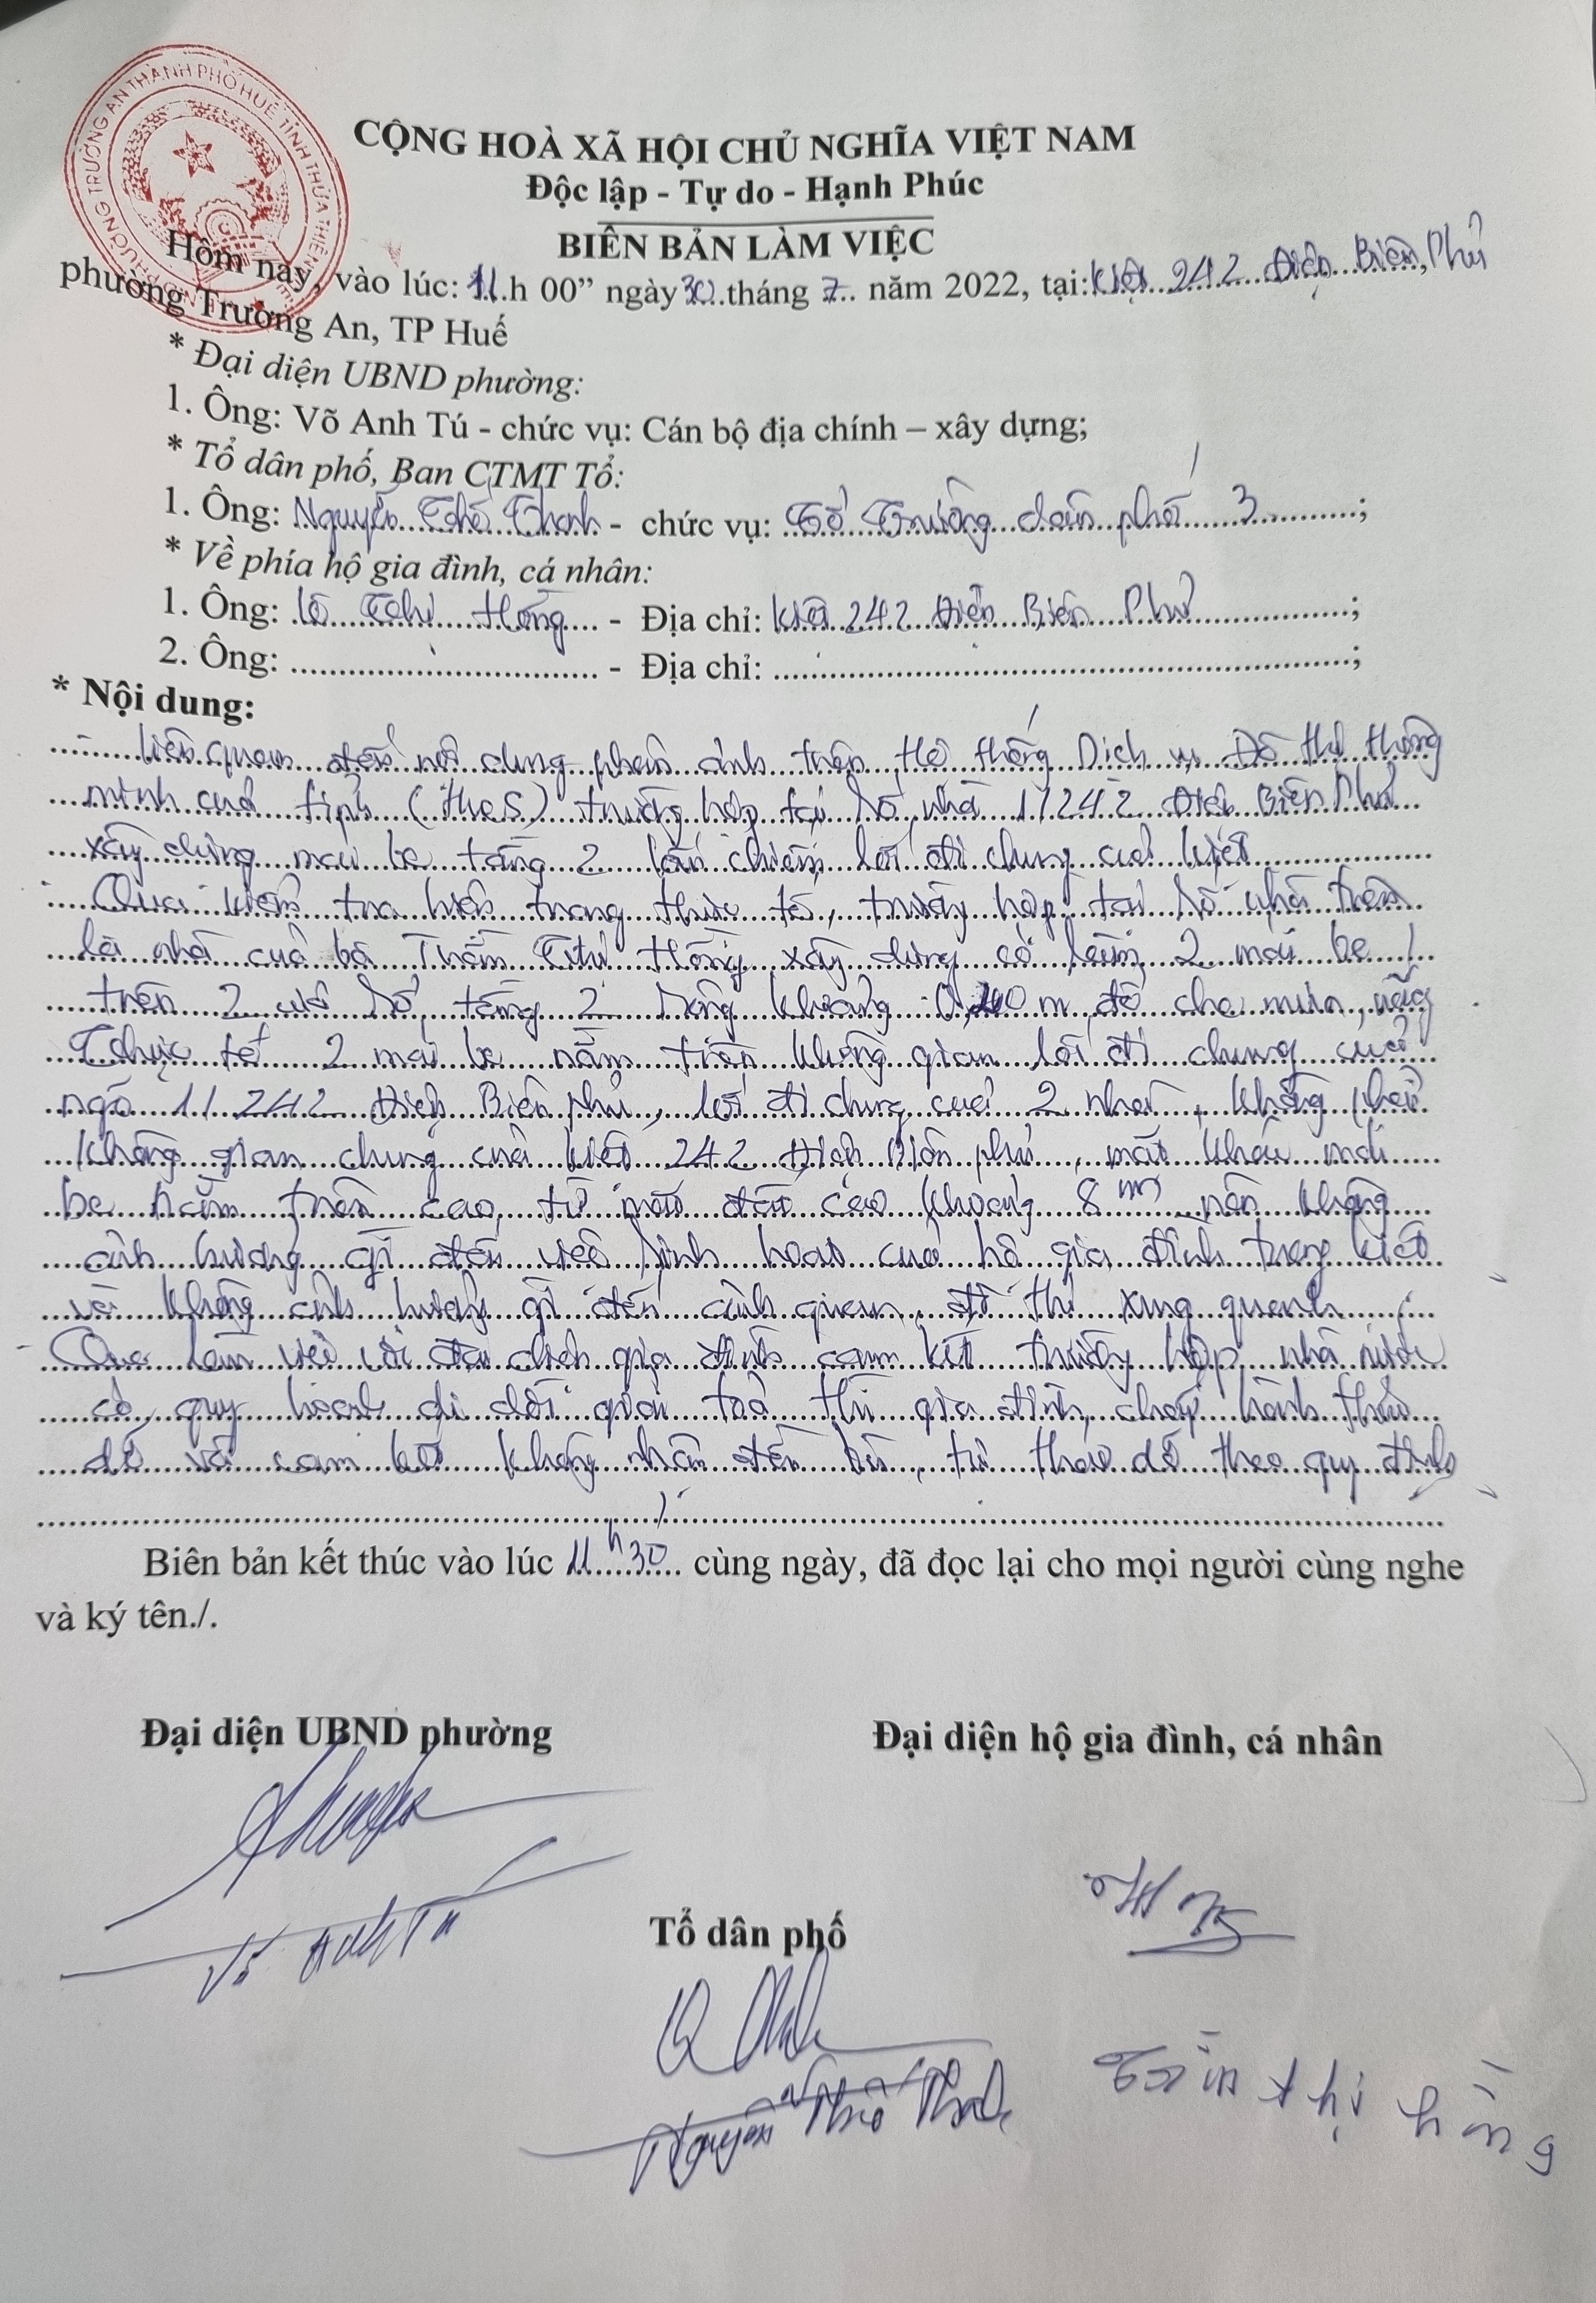 PHƯỜNG TRƯỜNG AN THÀNH PHỐ HUẾ TỈNH THỪA THIÊN HUẾ
CỘNG HOÀ XÃ HỘI CHỦ NGHĨA VIỆT NAM
Độc lập - Tự do - Hạnh Phúc
BIÊN BẢN LÀM VIỆC
Hôm nay, vào lúc: 11.h 00” ngày 30 tháng 7 năm 2022, tại: Kiệt 242 Điện Biên Phủ
phường Trường An, TP Huế
* Đại diện UBND phường:
1. Ông: Võ Anh Tú - chức vụ: Cán bộ địa chính – xây dựng;
* Tổ dân phố, Ban CTMT Tổ:
1. Ông: Nguyễn Thế Thanh - chức vụ: Tổ Trưởng dân phố 3;
* Về phía hộ gia đình, cá nhân:
1. Ông: Thị Hồng - Địa chỉ: Kiệt 242 Điện Biên Phủ;
2. Ông: - Địa chỉ: ;
* Nội dung:
- Liên quan đến nội dung phản ánh trên Hệ thống Dịch vụ Đô thị thông
minh của tỉnh (HueS) trường hợp tại số nhà 11/242 Điện Biên Phủ
xây dựng mái che tầng 2 lấn chiếm lối đi chung của kiệt
- Qua kiểm tra hiện trạng thực tế, trường hợp tại số nhà trên
là nhà của bà Trần Thị Hồng xây dựng có làm 2 mái che
trên 2 cửa sổ tầng 2 rộng khoảng m để che mưa, nắng
Thực tế 2 mái che nằm trên không gian lối đi chung của
ngõ 11/242 Điện Biên Phủ, lối đi chung của 2 nhà, không phải
không gian chung của kiệt 242 Điện Biên Phủ, mặt khác mái
che nằm trên cao, từ mặt đất cao khoảng 8m nên không
ảnh hưởng gì đến việc sinh hoạt của hộ gia đình trong kiệt
và không ảnh hưởng gì đến cảnh quan, đô thị xung quanh
- Qua làm việc với đại diện gia đình cam kết trường hợp nhà nước
có quy hoạch di dời giải toả thì gia đình chấp hành tháo
dỡ và cam kết không nhận đền bù, tự tháo dỡ theo quy định
./.
Biên bản kết thúc vào lúc 11h30 cùng ngày, đã đọc lại cho mọi người cùng nghe
và ký tên./.
Đại diện UBND phường Đại diện hộ gia đình, cá nhân
Võ Anh Tú
Tổ dân phố
Nguyễn Thế Thanh
Trần thị hồng